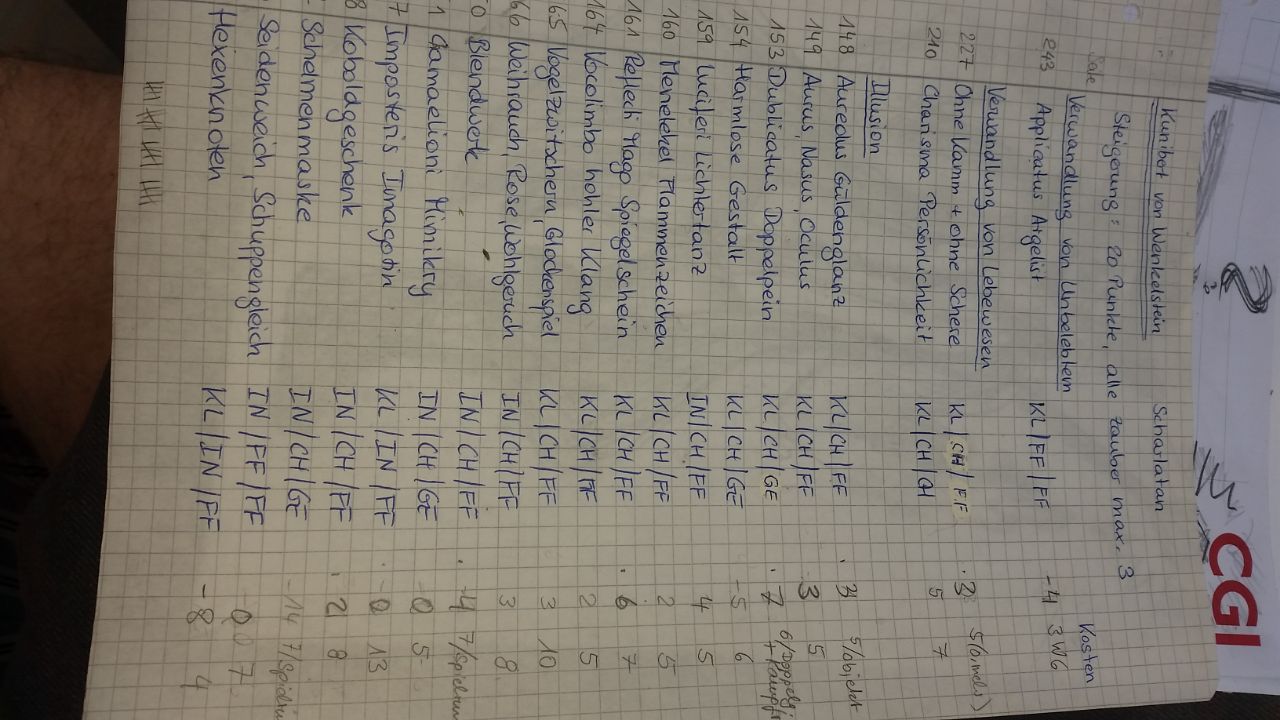 CGI
Kunibert von Wankelstein Scharlatan
Steigerung: 20 Punkte, alle Zauber max. 3
Seite Verwandlung von Unbelebtem Kosten
243 Applicatus Argelist KL/FF/FF -4 3W6
Verwandlung von Lebewesen
227 Ohne Kamm + ohne Schere KL/CH/FF 3
210 Charisma Persönlichkeit KL/CH/CH 5 7
Illusion
148 Aureolus Güldenglanz KL/CH/FF 3 5/Objekt
149 Auris, Nasus, Oculus KL/CH/FF 3 5
153 Dublicatus Doppelpein KL/CH/GE 7
154 Harmlose Gestalt KL/CH/GE -5 6
159 Luciferi Lichtertanz IN/CH/FF 4 5
160 Menetekel Flammenzeichen KL/CH/FF 2 5
161 Reflecti Mago Spiegelschein KL/CH/FF 6 7
164 Vocolimbo hohler Klang KL/CH/FF 2 5
65 Vogelzwitschern, Glockenspiel KL/CH/FF 3 10
66 Weihrauch, Rose, Wohlgeruch IN/CH/FF 3 8
0 Blendwerk IN/CH/FF -4
1 Chamaelioni Mimikry IN/CH/GE -0 5
7 Imposteris Imagotin KL/IN/FF -0 13
8 Koboldgeschenk IN/CH/FF 2 8
Schelmenmaske IN/CH/GE -14
Seidenweich, Schuppengleich IN/FF/FF 0 7
Hexenknoten KL/IN/FF -8 4